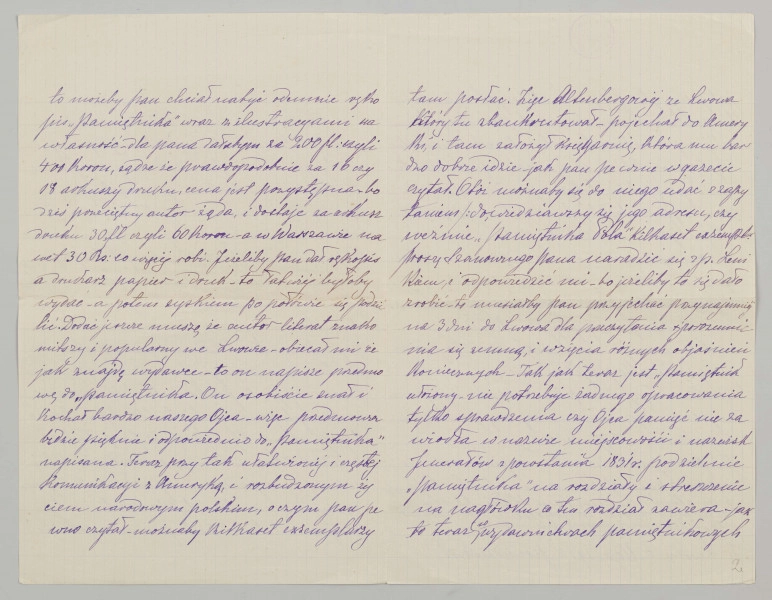 to możeby pan chciał nabyć odemnie ręko
pis „Pamiętnika" wraz z ilustracyami na
własność dla pana dałabym za 200 fl: czyli
400 Koron, sądzę że prawdopodobnie za 16 czy
18 arkuszy druku, cena jest przystępna – bo
dziś pośledni autor żąda, i dostaje za arkusz
druku 30 fl czyli 60 Koron – a w Warszawie na
wet 30 Rs: co więcej robi. Jeśliby pan dał rękopis
a dourarz papier i druk – to łatwiej byłoby
wydać – a potem zyskiem po połowie się podzie
lić. Dodać jeszcze muszę, że autor literat znako
mitszy i popularny we Lwowie – obiecał mi że
jak znajdę wydawcę – to on napisze przedmo
wę do „Pamiętnika. On osobiście znał i
Kochał bardzo naszego Ojca – więc przedmowa
będzie pięknie i odpowiednio do „Pamiętnika"
napisana. Teraz przy tak ułatwionej i częstej
Komunikacyi z Ameryką, i rozbudzonym ży
ciem narodowym polskim, o czym pan pe
wno czytał – możnaby Kilkaset exemplarzy
tam posłać. Żyje Altenbergowij ze Lwowa
który tu zbankrutował – pojechał do Amery
Ki, i tam założył Księgarnię, Która mu bar
dzo dobrze idzie jak pan pewnie w gazecie
czytał. Otóż możnaby się do niego udać z zapy
taniem /: dowiedziawszy się jego adresu, czy
weźmie „Pamiętnika Pola" Kilkaset exempl:
proszę Szanownego pana naradzić się z p.
i odpowiedzić mi – bo jeśliby to się dało
zrobić – to musiałby pan przyjechać przynajmniej
na 3 dni do Lwowa dla poczytania i porozumie
nia się zemną, i wzięcia różnych objaśnień
Koniecznych – Tak jak teraz jest „Pamiętnik
ułożony – nie potrzebuje żadnego opracowania
tylko sprawdzenia czy Ojca pamięć nie za
wiodła w nazwie miejscowości i nazwisk
Jenerałów z powstania 1831 r. podzielenie
„Pamiętnika" na rozdziały i streszczenie
na nagłówku co ten rozdział zawiera – jak
to teraz w wydawnictwach pamiętnikowych
2.